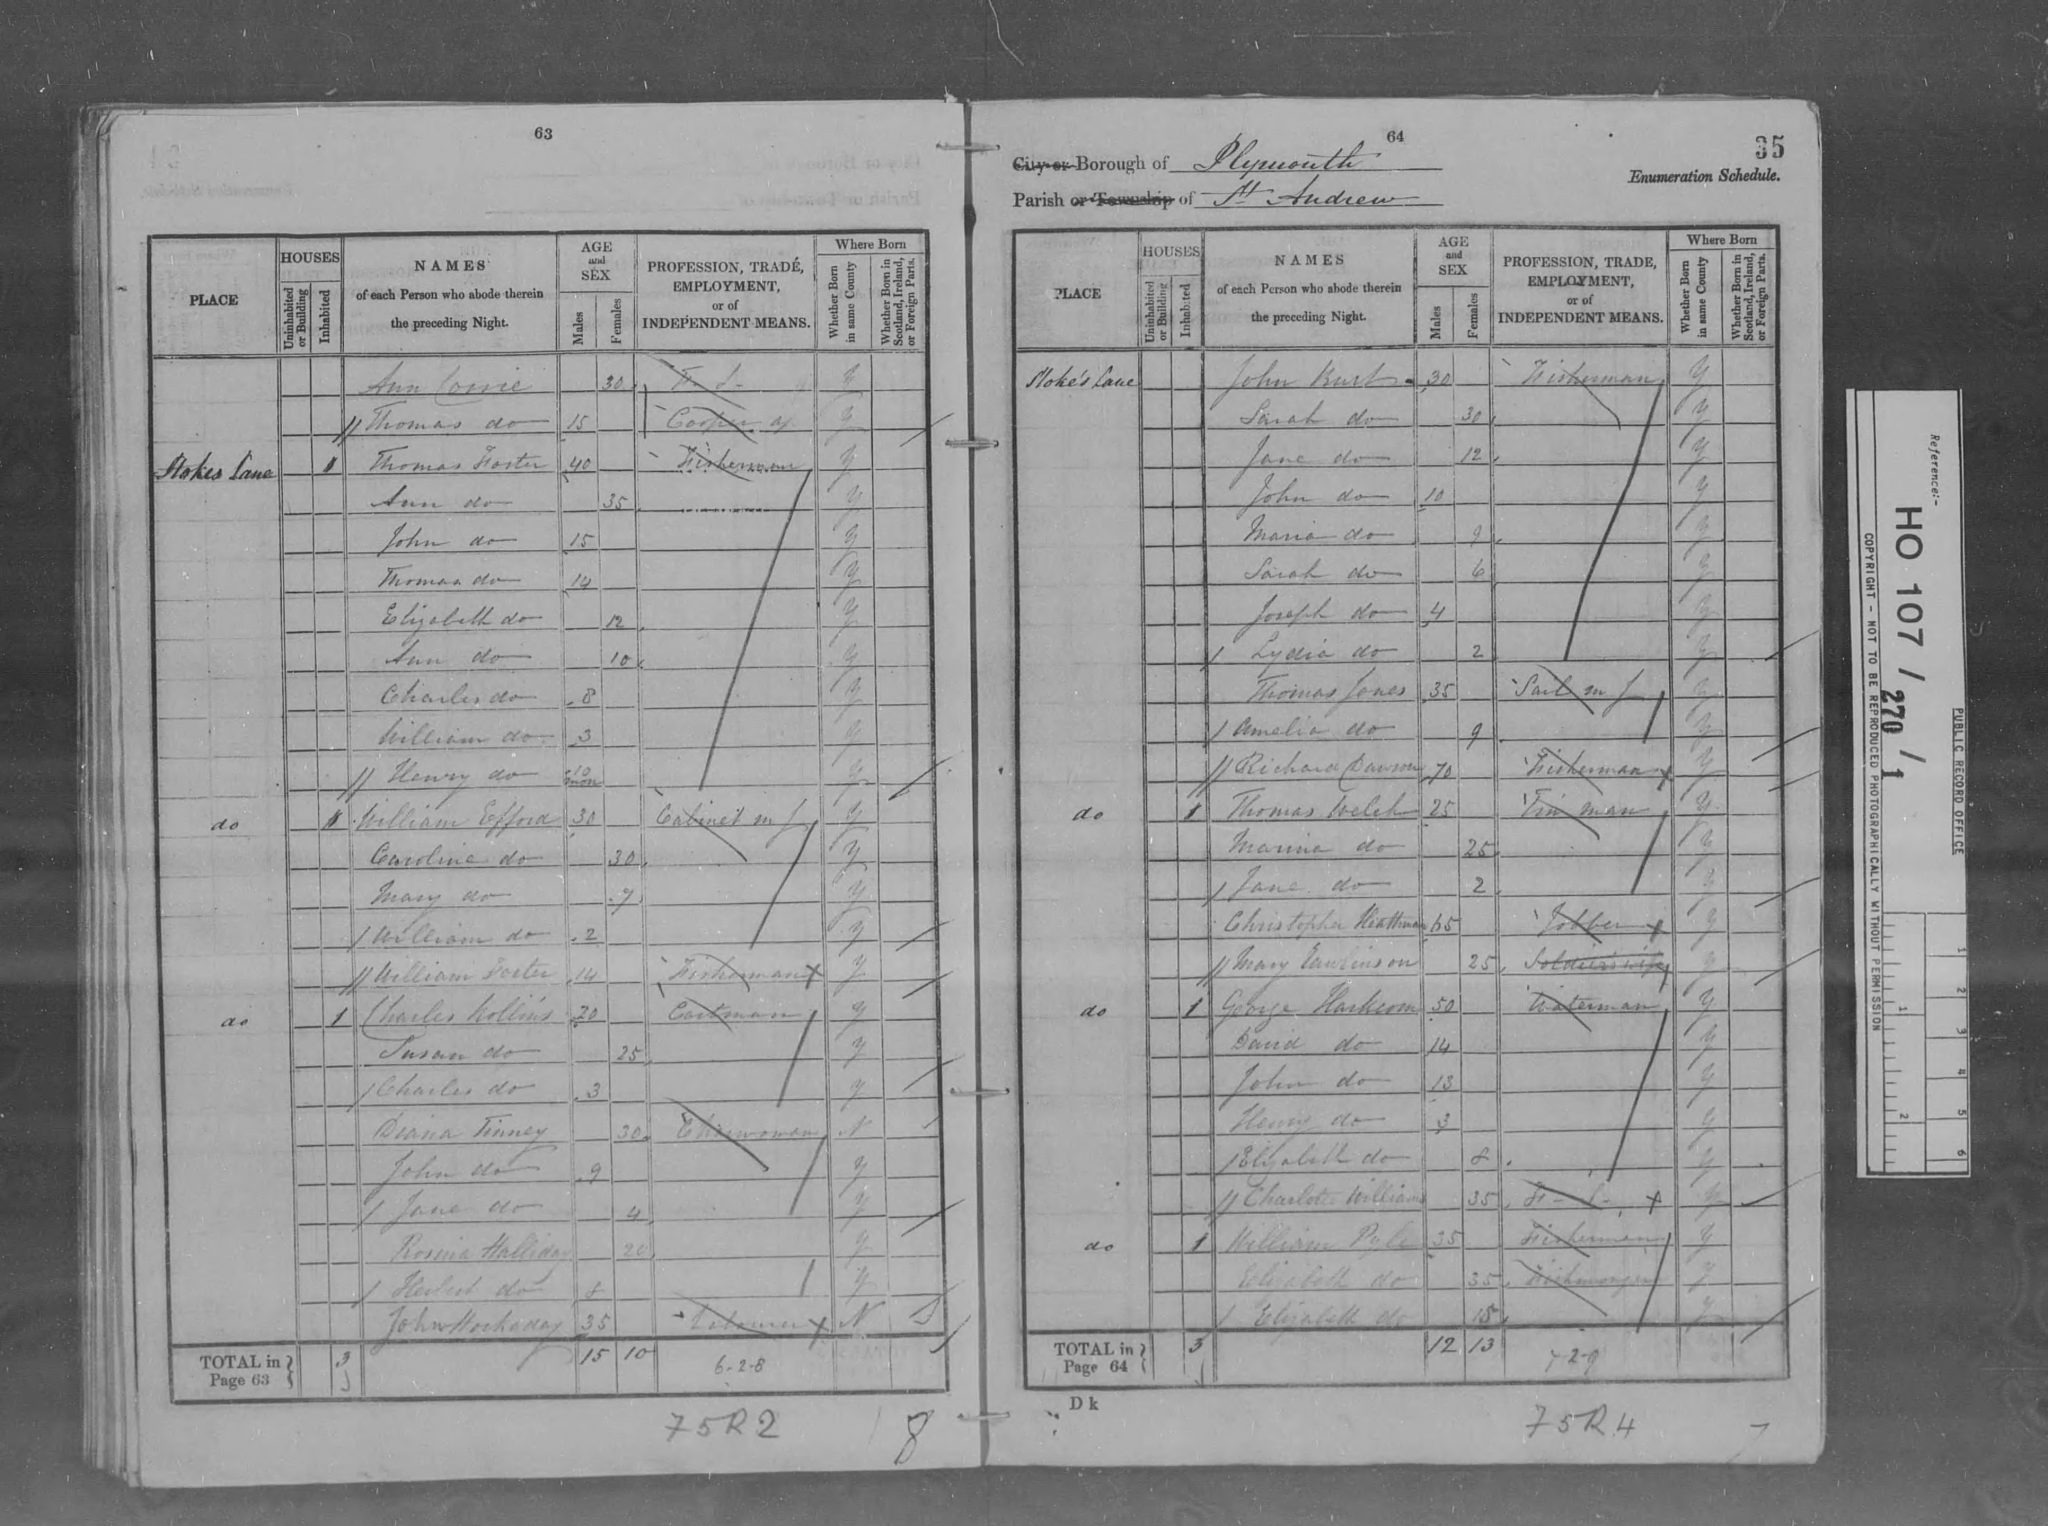 63
PLACE
HOUSES
Uninhabited or Building
Inhabited
NAMES
of each Person who abode therein
the preceding Night.
AGE
and
SEX
Males
Females
PROFESSION, TRADE,
EMPLOYMENT,
or of
INDEPENDENT MEANS.
Where Born
Whether Born in same County
Whether Born in Scotland, Ireland, or Foreign Parts.
Ann 30 F. S. Y
Thomas do 15 Cooper ap Y
Stokes Lane 1 Thomas Foster 40 Fisherman Y
Ann do 35 Y
John do 15 Y
Thomas do 14 Y
Elizabeth do 12 Y
Ann do 10 Y
Charles do 8 Y
William do 3 Y
Henry do 10 mon Y
do 1 William Efford 30 Cabinet m J Y
Caroline do 30 Y
Mary do 7 Y
William do 2 Y
William Foster 14 Fisherman Y
do 1 Charles Kollins 20 Cartman Y
Susan do 25 Y
Charles do 3 Y
Diana Tinney 30 Charwoman N
John do 9 Y
Jane do 4 Y
Rosina Halliday 20 Y
Herbert do 8 Y
John Hockaday 35 Labourer N
TOTAL in Page 63 3 15 10
6-2-8
75R2
8
64
35
City or Borough of Plymouth
Enumeration Schedule.
Parish or Township of St Andrew
PLACE
HOUSES
Uninhabited or Building
Inhabited
NAMES
of each Person who abode therein
the preceding Night.
AGE
and
SEX
Males
Females
PROFESSION, TRADE,
EMPLOYMENT,
or of
INDEPENDENT MEANS.
Where Born
Whether Born in same County
Whether Born in Scotland, Ireland, or Foreign Parts.
Stoke's Lane John Burt 30 Fisherman Y
Sarah do 30 Y
Jane do 12 Y
John do 10 Y
Maria do 9 Y
Sarah do 6 Y
Joseph do 4 Y
Lydia do 2 Y
Thomas Jones 35 Sail m J Y
Amelia do 9 Y
Richard Dawson 70 Fisherman Y
do 1 Thomas Welch 25 Tin man Y
Marina do 25 Y
Jane do 2 Y
Christopher 65 Jobber Y
Mary Rawlinson 25 Soldier's wife Y
do 1 George Harkcom 50 Waterman Y
David do 14 Y
John do 13 Y
Henry do 3 Y
Elizabeth do 8 Y
Charlotte Williams 35 F. S. Y
do 1 William Pyle 35 Fisherman Y
Elizabeth do 35 Y
Elizabeth do 15 Y
TOTAL in Page 64 3 12 13
7-2-9
D k
75R4
7
Reference:-
HO 107 / 270 / 1
PUBLIC RECORD OFFICE
COPYRIGHT - NOT TO BE REPRODUCED PHOTOGRAPHICALLY WITHOUT PERMISSION
1 2 3 4 5 6
1 2